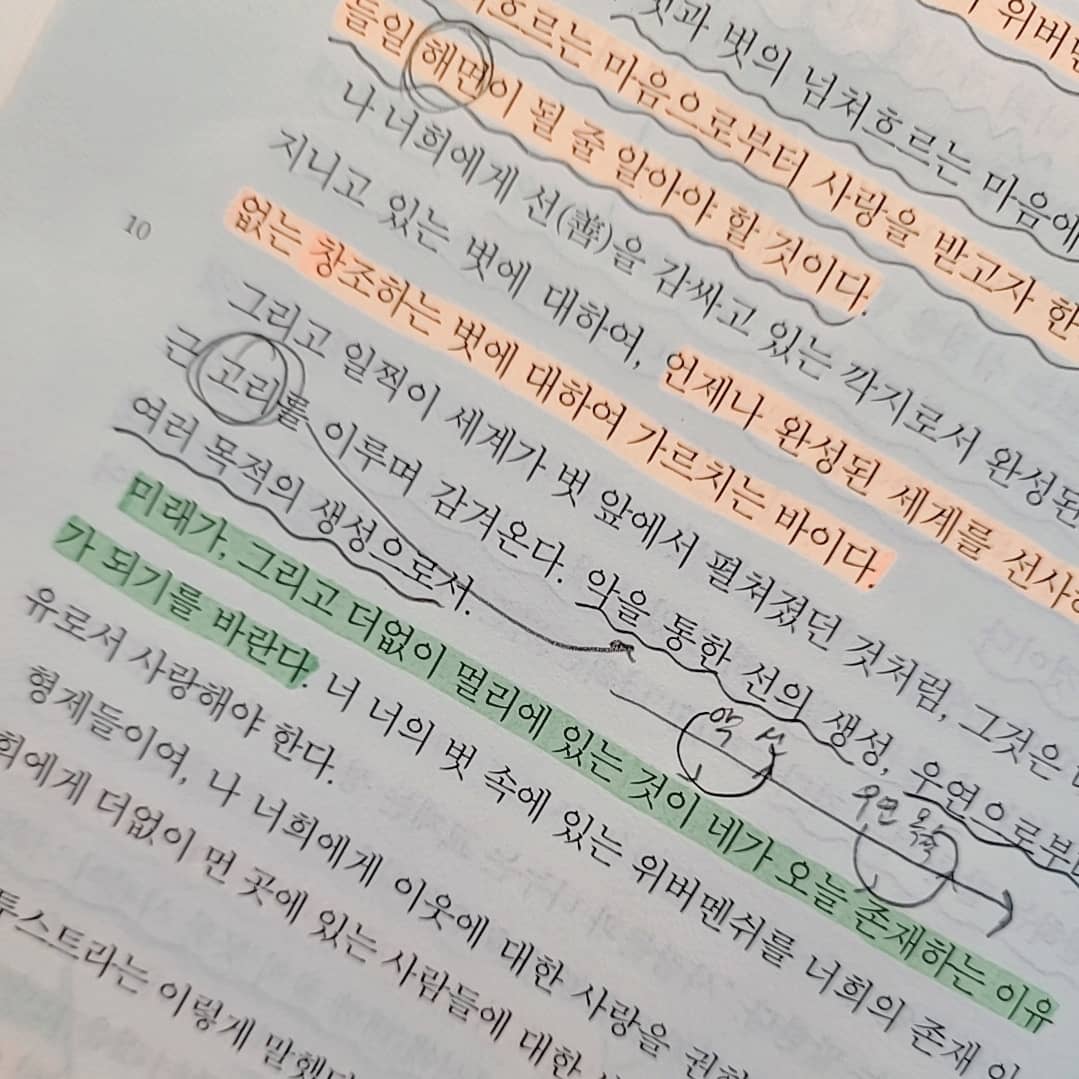 위버멘
벗과 벗의 넘쳐흐르는 마음에
흐르는 마음으로부터 사랑을 받고자 한
들일 해면이 될 줄 알아야 할 것이다.
나 너희에게 선(善)을 감싸고 있는 깍지로서 완성된
지니고 있는 벗에 대하여, 언제나 완성된 세계를 선사
없는 창조하는 벗에 대하여 가르치는 바이다.
10
그리고 일찍이 세계가 벗 앞에서 펼쳐졌던 것처럼, 그것은
근 고리를 이루며 감겨온다. 악을 통한 선의 생성, 우연으로부
여러 목적의 생성으로서.
악 선
우연 목적
미래가, 그리고 더없이 멀리에 있는 것이 네가 오늘 존재하는 이유
가 되기를 바란다. 너 너의 벗 속에 있는 위버멘쉬를 너희의 존재
유로서 사랑해야 한다.
형제들이여, 나 너희에게 이웃에 대한 사랑을 권하
희에게 더없이 먼 곳에 있는 사람들에 대한
투스트라는 이렇게 말했다